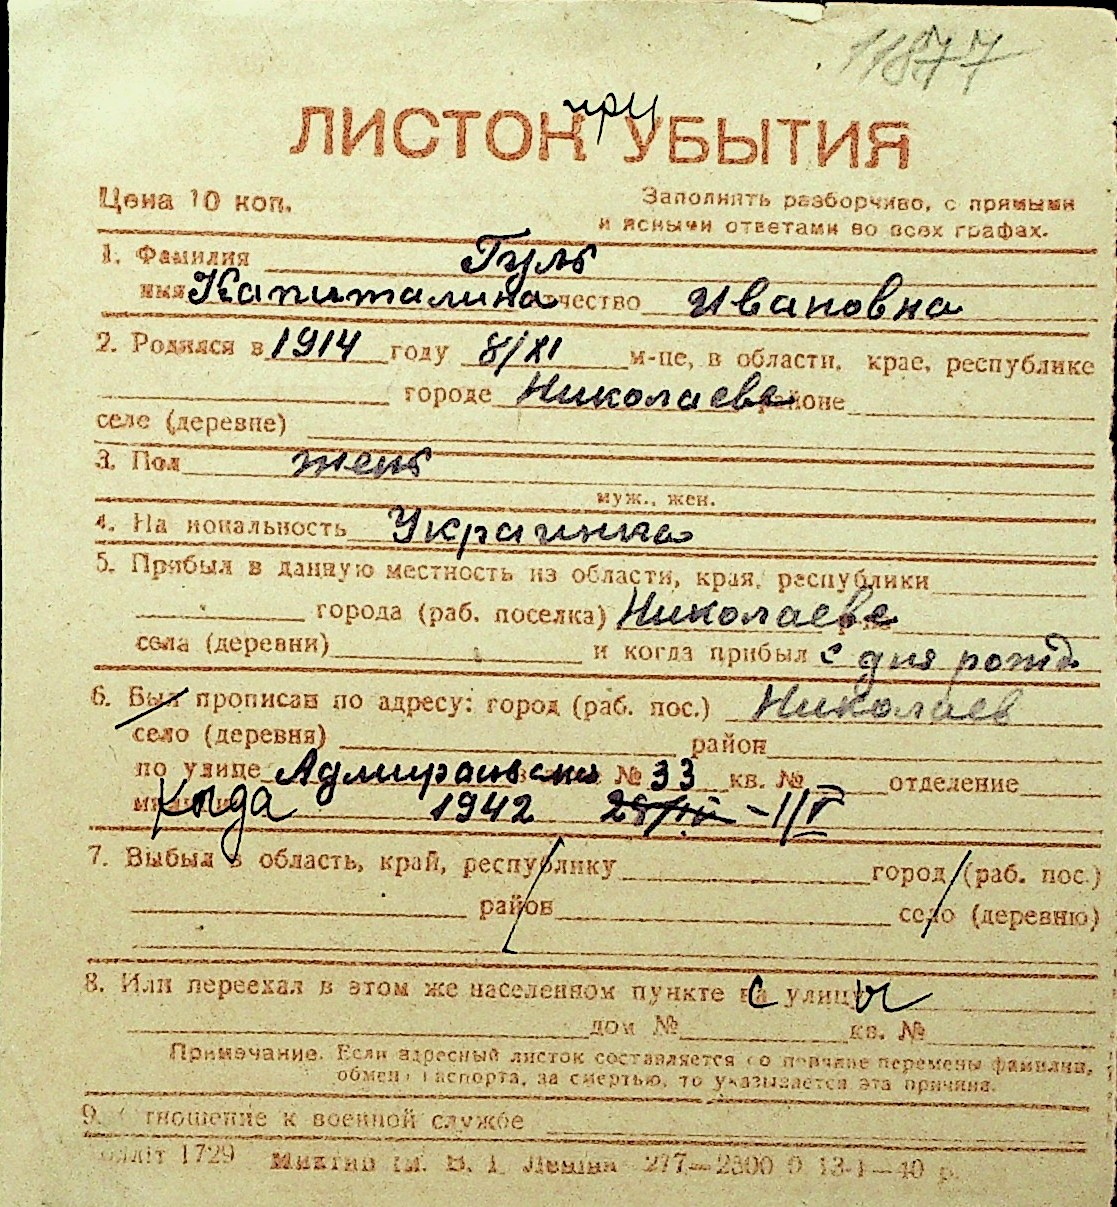 11877
при
ЛИСТОК УБЫТИЯ
Цена 10 коп.
Заполнять разборчиво, с прямыми
и ясными ответами во всех графах.
1. Фамилия Гуль
имя Капиталина отчество Ивановна
2. Родился в 1914 году 8/XI м-це, в области, крае, республике
городе Николаеве районе
селе (деревне)
3. Пол женс
муж., жен.
4. На иональность Украинка
5. Прибыл в данную местность из области, края, республики
города (раб. поселка) Николаева
села (деревни) и когда прибыл с дня рожд
6. Был прописан по адресу: город (раб. пос.) Николаев
село (деревня) район
по улице № 33 кв. № отделение
Когда 1942 28/IV - 1/V
7. Выбыл в область, край, республику город (раб. пос.)
район село (деревню)
8. Или переехал в этом же населенном пункте с улицы
дом № кв. №
Примечание. Если адресный листок составляется по причине перемены фамилии,
обмена паспорта, за смертью, то указывается эта причина.
9. Отношение к военной службе
1729 им. В. І. Леніна 277—2300 0 13-1—40 р.